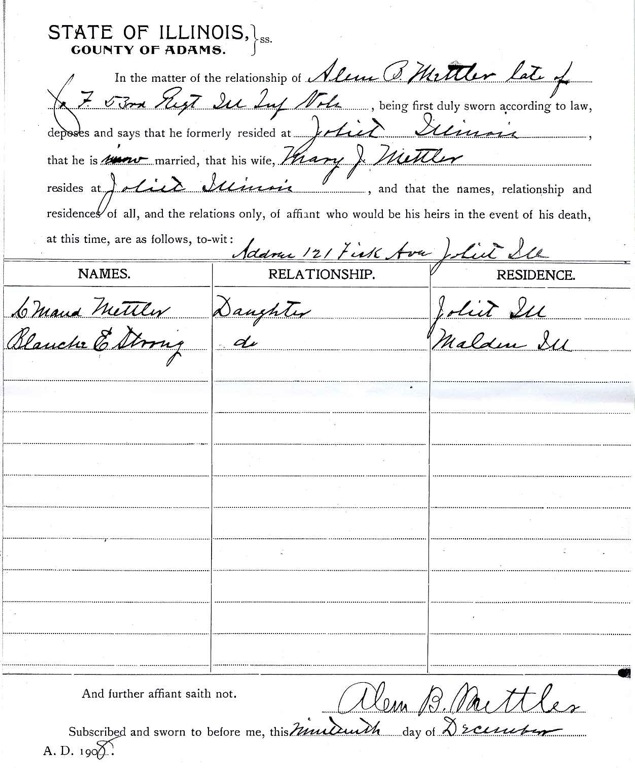 STATE OF ILLINOIS, } ss.
COUNTY OF ADAMS.
In the matter of the relationship of Alem B Mettler late of
Co F. 53rd Regt Ill Inf Vols, being first duly sworn according to law,
deposes and says that he formerly resided at Joliet Illinois,
that he is married, that his wife, Mary J. Mettler
resides at Joliet Illinois, and that the names, relationship and
residences of all, and the relations only, of affiant who would be his heirs in the event of his death,
at this time, are as follows, to-wit: Address 121 Fisk Ave Joliet Ill
NAMES. RELATIONSHIP. RESIDENCE.
Maud Mettler Daughter Joliet Ill
Blanche E Strong do Malden Ill
And further affiant saith not. Alem B. Mettler
Subscribed and sworn to before me, this Nineteenth day of December
A. D. 1908.